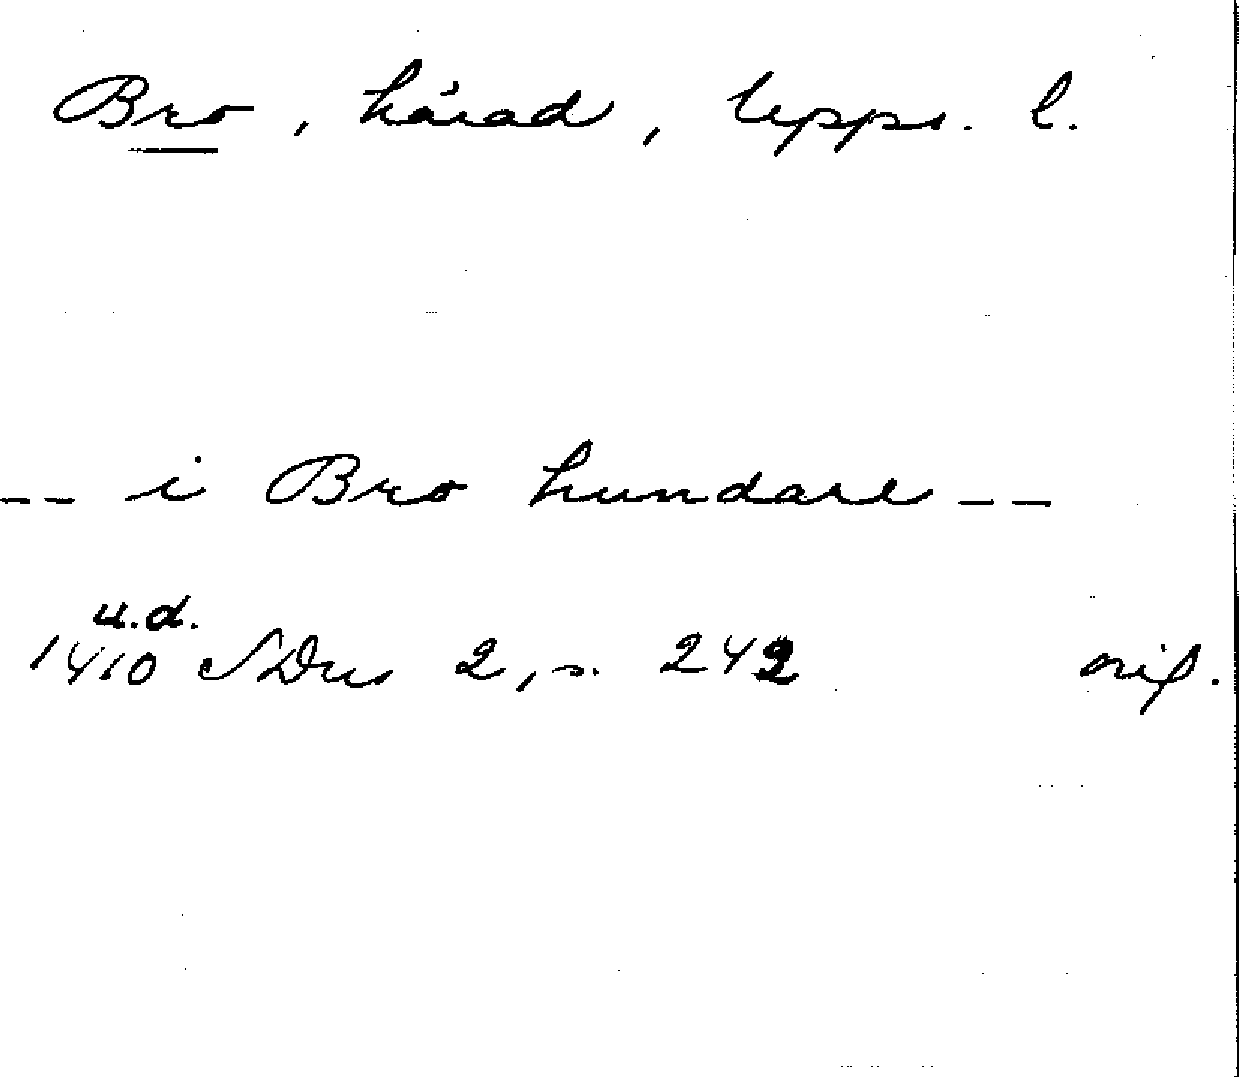 Bro, härad, Upps. l.
-- i Bro hundare --
u.d.
1410 SDns 2, s. 242 orig.